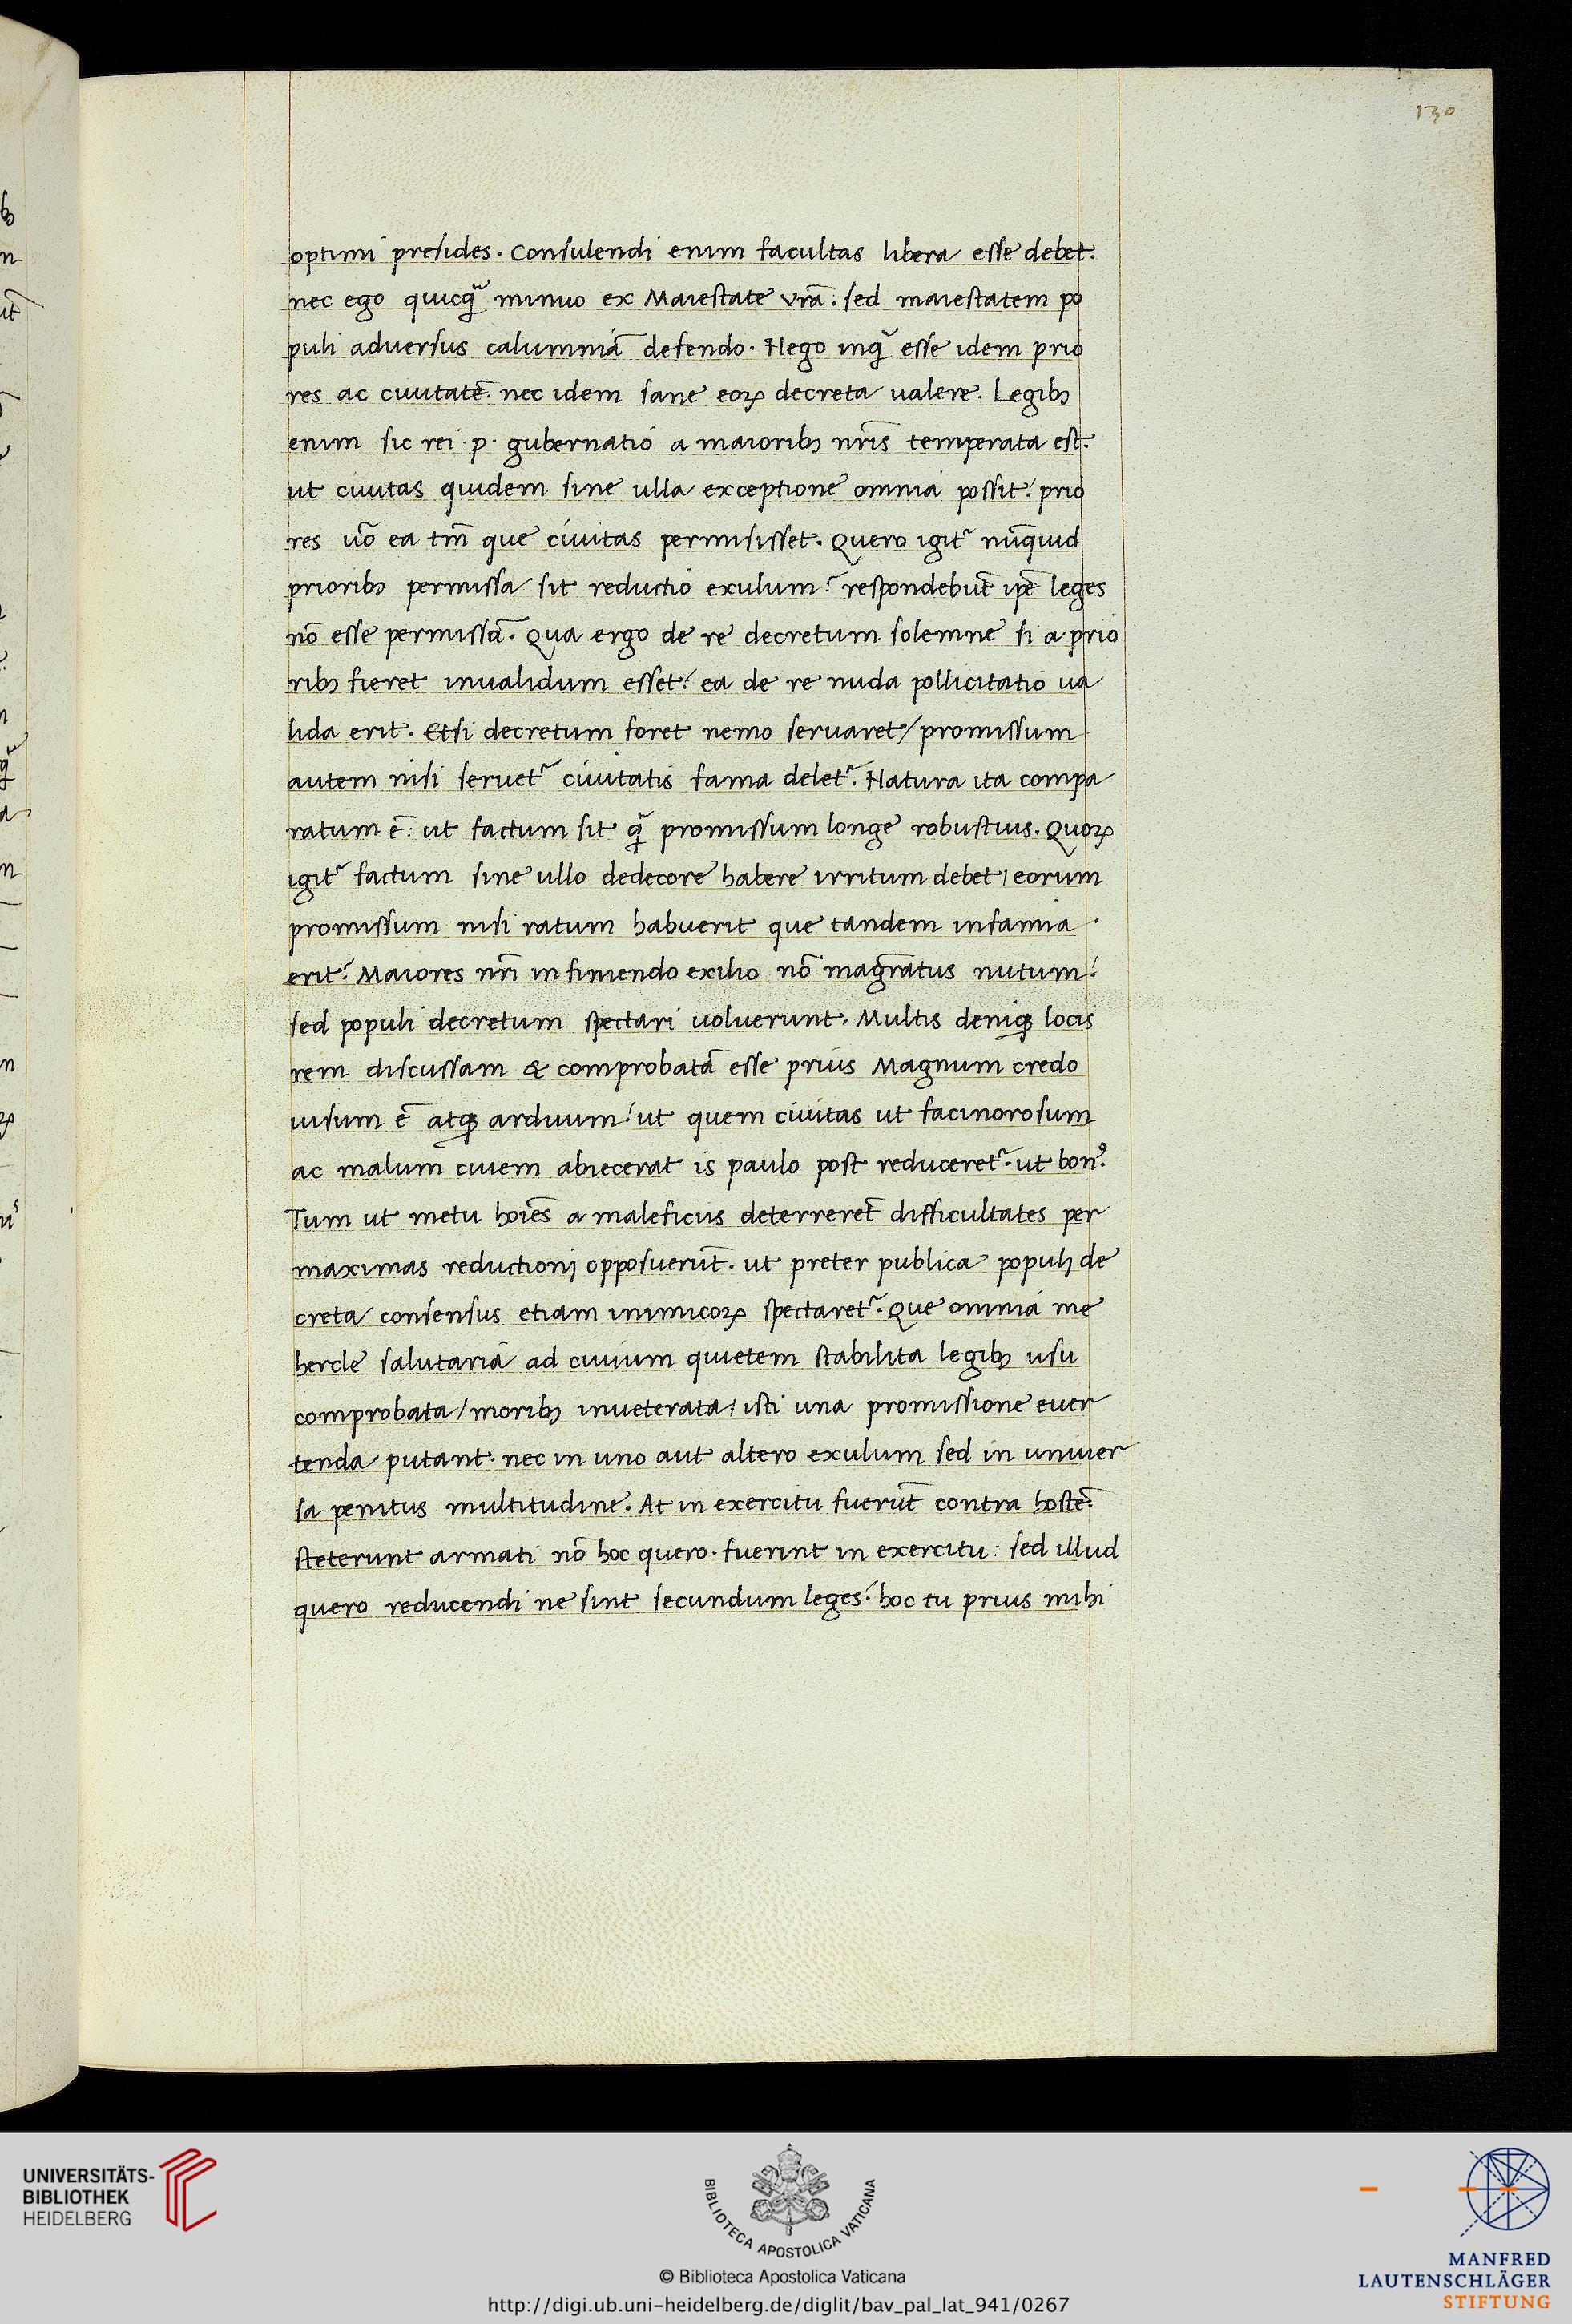 130
optimi presides. Consulendi enim facultas libera esse debet.
nec ego quicq̃ minuo ex Maiestate vrã: sed maiestatem po
puli adversus calumniã defendo. Nego inq̃ esse idem prio
res ac civitatẽ. nec idem sane eoꝝ decreta valere. Legibꝫ
enim sic rei .p. gubernatio a maioribꝫ nr̃is temperata est.
ut civitas quidem sine ulla exceptione omnia possit: prio
res uõ ea tm̃ que civitas permisisset. Quero igit᷑ nũquid
prioribꝫ permissa sit reductio exulum? respondebũt ip̃e leges
nõ esse permissã. Qua ergo de re decretum solemne si a prio
ribꝫ fieret invalidum esset: ea de re nuda pollicitatio va
lida erit. Etsi decretum foret nemo servaret/promissum
autem nisi servet᷑ civitatis fama delet᷑. Natura ita compa
ratum ẽ: ut factum sit q̃ promissum longe robustius. Quoꝝ
igit᷑ factum sine ullo dedecore habere irritum debet/eorum
promissum nisi ratum habuerit que tandem infamia
erit? Maiores nr̃i in finiendo exilio nõ magr̃atus nutum:
sed populi decretum spectari voluerunt. Multis deniqꝫ locis
rem discussam & comprobatã esse prius Magnum credo
visum ẽ atqꝫ arduum: ut quem civitas ut facinorosum
ac malum civem abiecerat is paulo post reduceret᷑. ut bonꝰ.
Tum ut metu hoĩes a maleficiis deterreret̃ difficultates per
maximas reductionj opposuerũt. ut preter publica populj de
creta consensus etiam inimicoꝝ spectaret᷑. Que omnia me
hercle salutaria ad civium quietem stabilita legibꝫ usu
comprobata/moribꝫ inveterata/isti una promissione ever
tenda putant. nec in uno aut altero exulum sed in univer
sa penitus multitudine. At in exercitu fuerũt contra hostẽ.
steterunt armati nõ hoc quero. fuerint in exercitu: sed illud
quero reducendi ne sint secundum leges: hoc tu prius mihi
UNIVERSITÄTS-
BIBLIOTHEK
HEIDELBERG
BIBLIOTECA APOSTOLICA VATICANA
© Biblioteca Apostolica Vaticana
http://digi.ub.uni-heidelberg.de/diglit/bav_pal_lat_941/0267
MANFRED
LAUTENSCHLÄGER
STIFTUNG